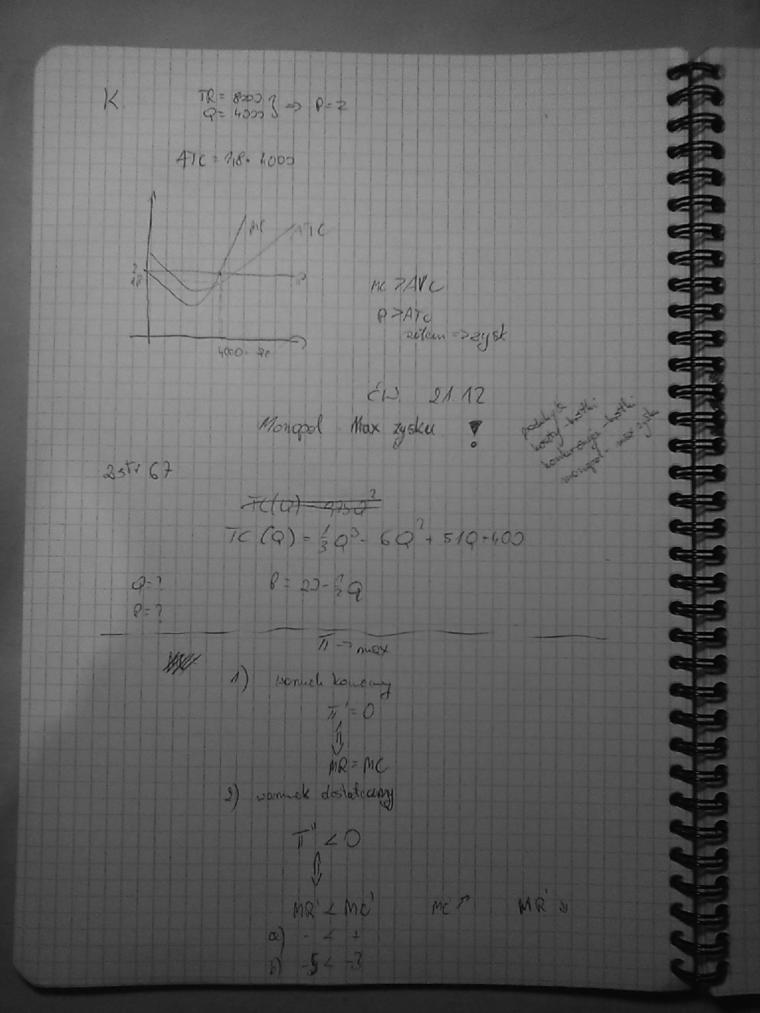 K.
TR = 8000
Q = 4000 } => P = 2
ATC = 1,8 · 4000
MC
ATC
2
1,8
4000
MC > AVC
P > ATC
zatem => zysk
ĆW 21.12
Monopol Max zysku !
koszty - krótki
konkurencja - krótki
monopol - max zysk
2 str 67
TC(Q)
TC(Q) = 1/3 Q³ - 6Q² + 51Q + 400
Q = ?
P = ?
π -> max
1) warunek konieczny
π' = 0
⇕
MR = MC
2) warunek dostateczny
π'' < 0
⇕
MR' < MC' MC ↗ MR ↘
a) - < +
b) -5 < -3